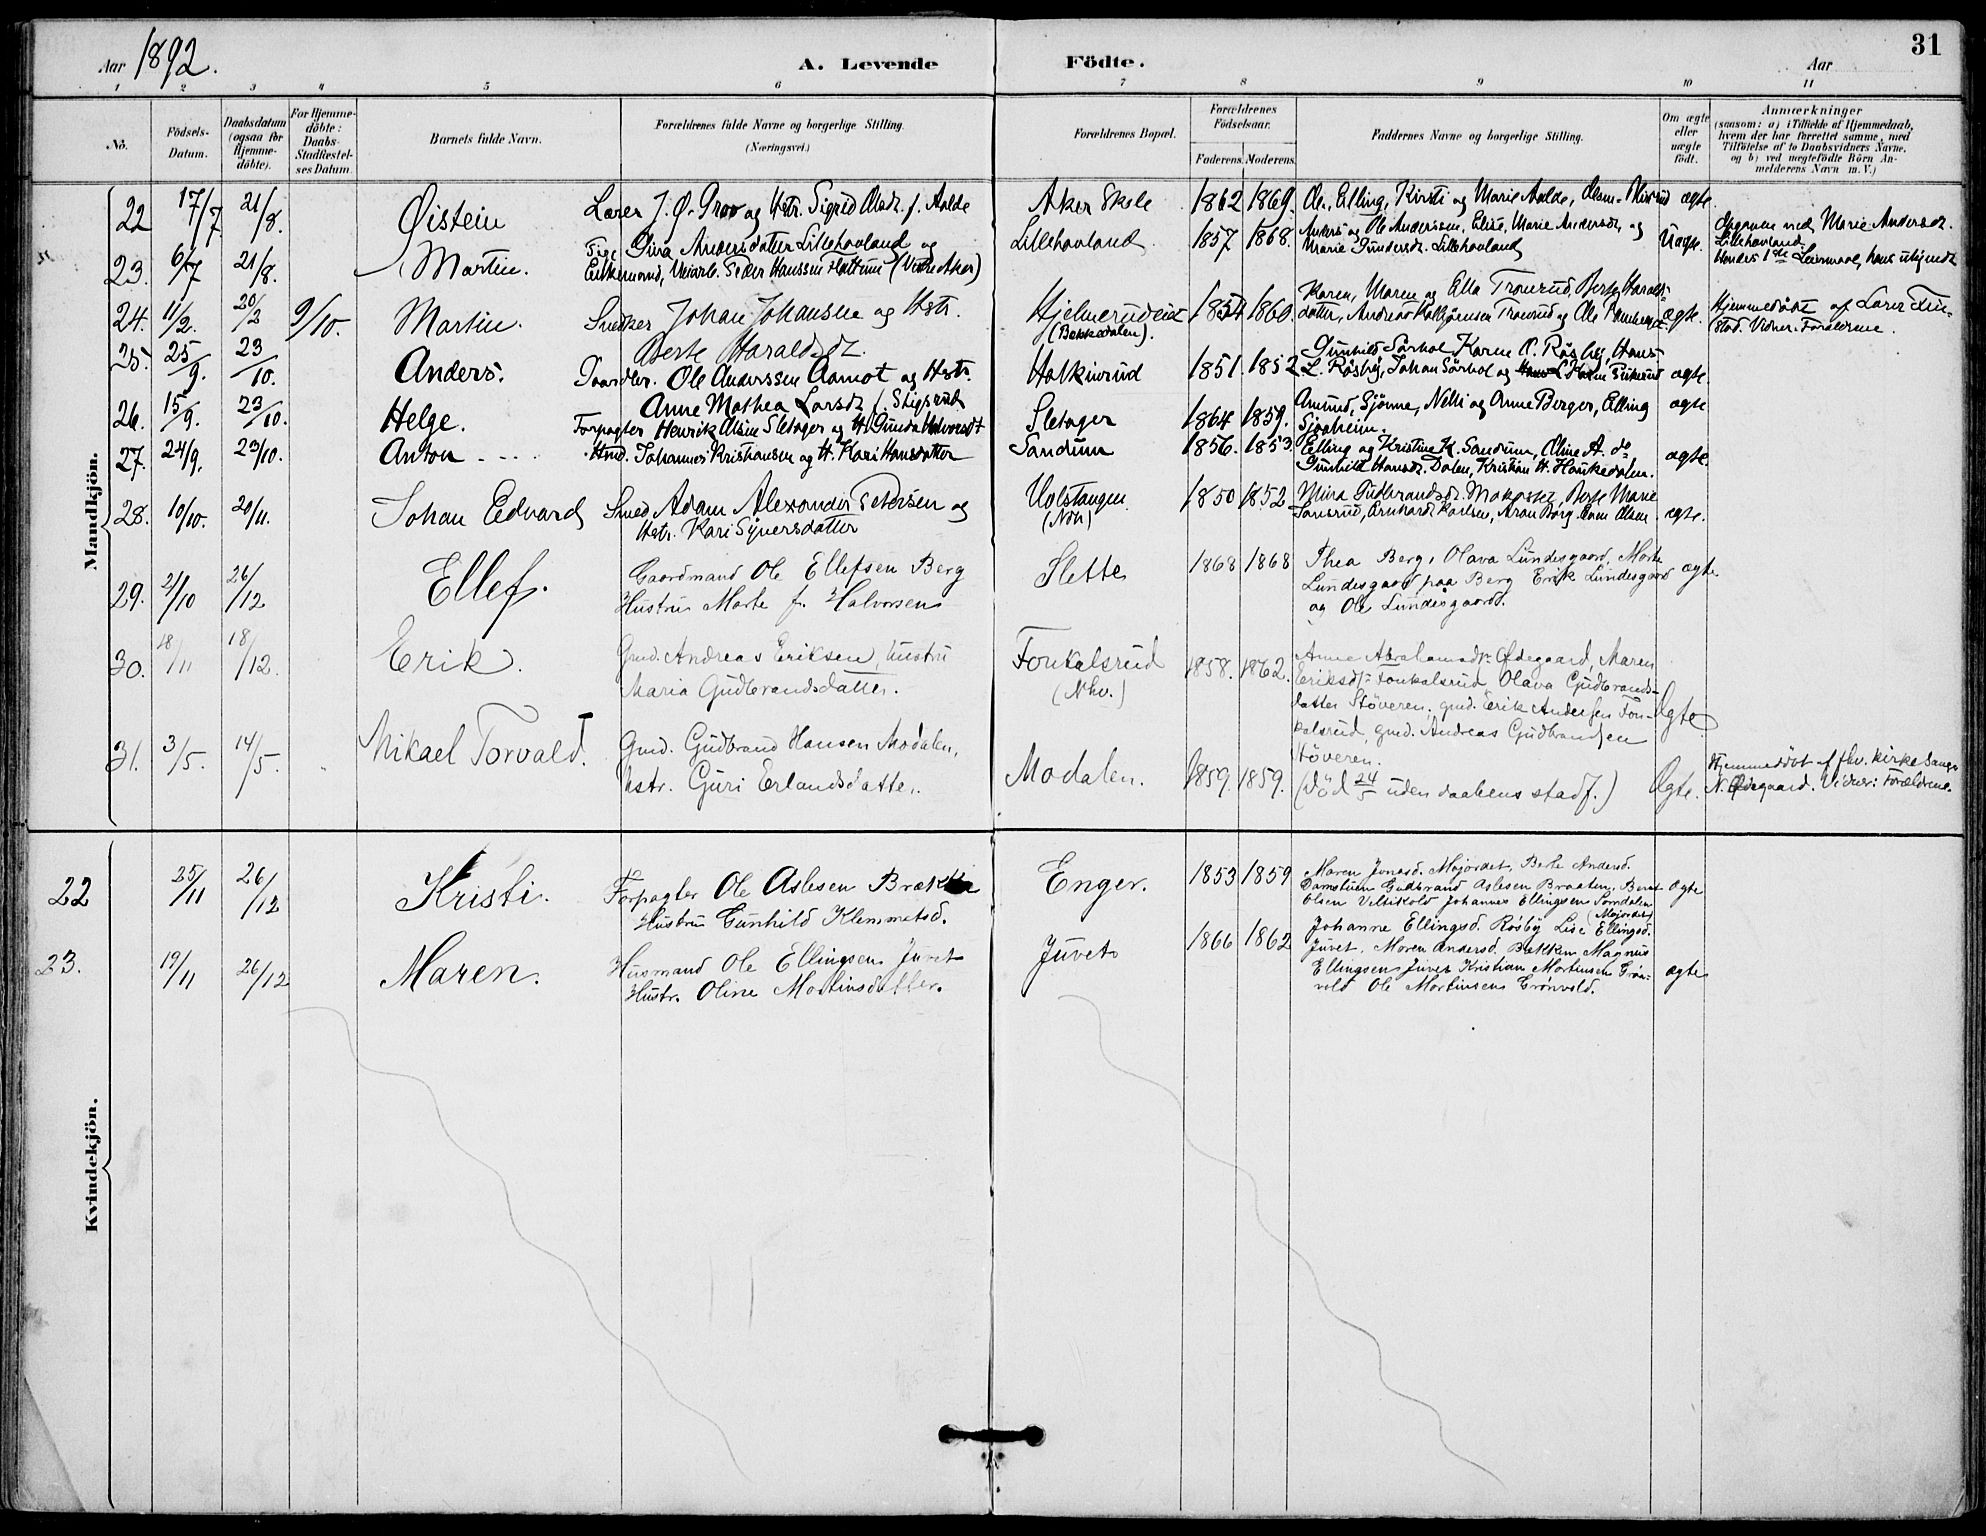 Aar 1892.
A. Levende Födte.
Aar
31
1 2 3 4 5 6 7 8 9 10 11
No.
Födsels-
Datum.
Daabsdatum
(ogsaa for
Hjemme-
döbte).
For Hjemme-
döbte:
Daabs-
Stadfæstel-
ses Datum.
Barnets fulde Navn.
Forældrenes fulde Navne og borgerlige Stilling.
(Næringsvei.)
Forældrenes Bopæl.
Forældrenes
Födselsaar.
Faderens. Moderens.
Faddernes Navne og borgerlige Stilling.
Om ægte
eller
uægte
födt.
Anmærkninger
(saasom: a) i Tilfælde af Hjemmedaab,
hvem der har forrettet samme, med
Tilföielse af to Daabsvidners Navne,
og b) ved uægtefödte Börn An-
melderens Navn m. V.)
Mandkjön.
22 17/7 21/8. Øistein Lærer J. Ø. Grov og Hstr. Sigrid Olsdr. f. Aalde Aker Skole 1862 1869. Ole, Elling, Kirsti og Marie Aalde, ægte
23. 6/7 21/8. Martin. Pige Guro Andersdatter Lillehovland og
Enkemand, Veiarb. Peder Hanssen (Vestre Aker) Lillehovland 1857 1868. Anders og Ole Andersson, Elise, Marie Andersdr, og
Marie Gundersd. Lillehovland Uægte. Opgaven ved Marie Andersdr.
Lillehovland.
Hendes 1ste Leiermaal, hans ubekjendt
24. 11/2. 20/2 9/10. Martin. Snedker Johan Johansen og Hstr.
Berte Haraldsdr. Hjelmerudeiet
(Bekkedalen). 1854 1860. Karen, Maren og Ella Tronrud, Berte Haralds-
datter, Andreas Tronrud og Ole ægte. Hjemmedöbt af Lærer Fin-
stad. Vidner: Forældrene.
25. 25/9. 23/10. Anders. Gaardbr. Ole Anderssen Aamot og Hstr.
Anne Mathea Larsdr f. Stigsrud Halkinrud 1851. 1852 Gunhild Sörhol Karen O. Røsbej, Hans
L. Røsbej, Johan Sörhol og ægte.
26. 15/9. 23/10. Helge. Forpagter Henrik Olsen Sletager og H. Gunda Halvorsdt Sletager 1864 1859. Amund, Sjönne, Nelli og Anne Berger, Elling
Sjoaheim. ægte
27. 24/9. 23/10. Anton Hmd. Johannes Kristiansen og H. Kari Hansdatter Sandum 1856. 1853. Elling og Kristine K. Sandum, Oline A. do
Gunhild Hansdr. Dalen, Kristian H. Haukedalen. ægte.
28. 10/10. 20/11. Johan Edvard Smed Adam Alexander Petersen og
Hstr. Kari Syversdatter Volstangen
(Ndr) 1850 1852 Mina Gudbrandsdr. Berte Marie
Arnhardt Karlsen, Aron Borg Olsen ægte.
29. 2/10 26/12 Ellef. Gaardmand Ole Ellefsen Berg
Hustru Marte f. Halvorsen Slette 1868 1868 Thea Berg, Olava Lundesgaard, Marte
Lundesgaard paa Berg Erik Lundesgaard
og Ole Lundesgaard. ægte
30. 18/11 18/12. Erik. Gmd. Andreas Eriksen, hustru
Maria Gudbrandsdatter. Fonkalsrud
(Nhv.) 1858. 1862. Anne Abrahamsdr Ødegaard, Maren
Eriksdr Fonkalsrud Olava Gudbrands-
datter Stöveren, gmd. Erik Andersen Fon-
kalsrud, gmd. Andreas Gudbrandsen
Stöveren. Ægte
31. 3/5. 14/5. Mikael Torvald. Gmd. Gudbrand Hansen Modalen,
hstr. Guri Erlandsdatter. Modalen. 1859. 1859. (död 24/5 uden daabens stadf.) Ægte. Hjemmedöbt af fhv. kirkesanger
N. Ødegaard. Vidner: Forældrene.
Kvindekjön.
22 25/11 26/12 Kristi. Forpagter Ole Aslesen Brække
Hustru Gunhild Klemmetsd. Enger. 1853 1859 Maren Jonasd. Majordet, Berte Andersd.
Gudbrand Aslesen Braaten, Bernt
Olsen Veltikold Johannes Ellingsen Somdalen
(Majordet) ægte
23. 19/11 26/12 Maren. Husmand Ole Ellingsen Juvet
Hustr. Oline Martinsdatter. Juvet 1866 1862 Johanne Ellingsd. Røsby Lise Ellingsd.
Juvet, Maren Andersd. Bakken Magnus
Ellingsen Juvet Kristian Martinsen Grön-
vold Ole Martinsen Grönvold. ægte